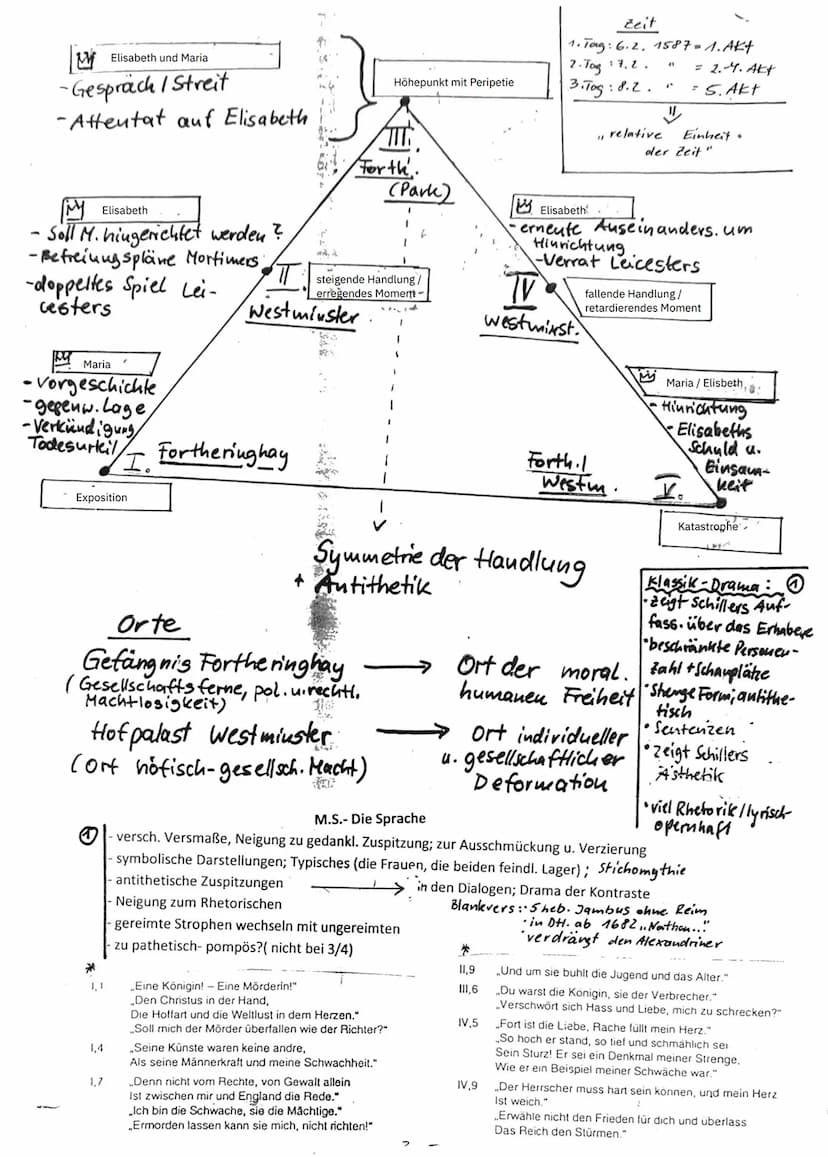 Elisabeth und Maria
- Gespräch / Streit
- Attentat auf Elisabeth
Höhepunkt mit Peripetie
Zeit
1. Tag: 6.2. 1587 = 1. Akt
2. Tag: 7.2. " = 2.-4. Akt
3. Tag: 8.2. " = 5. Akt
⇓
„relative Einheit
der Zeit"
III.
Forth.
(Park)
Elisabeth
- Soll M. hingerichtet werden?
- Befreiungspläne Mortimers
- doppeltes Spiel Lei-
cesters
II.
steigende Handlung /
erregendes Moment
Westminster
Elisabeth
- erneute Auseinanders. um
Hinrichtung
- Verrat Leicesters
IV
Westminst.
fallende Handlung /
retardierendes Moment
Maria
- Vorgeschichte
- gegenw. Lage
- Verkündigung
Todesurteil
I. Fortheringhay
Exposition
Maria / Elisbeth
- Hinrichtung
- Elisabeths
Schuld u.
Einsam-
keit
Forth. /
Westm.
V.
Katastrophe
Symmetrie der Handlung
+ Antithetik
Orte
Gefängnis Fortheringhay → Ort der moral.
humanen Freiheit
(Gesellschaftsferne, pol. u. rechtl.
Machtlosigkeit)
Hofpalast Westminster → Ort individueller
u. gesellschaftlicher
Deformation
(Ort höfisch-gesellsch. Macht)
Klassik-Drama: ①
• zeigt Schillers Auf-
fass. über das Erhabene
• beschränkte Personen-
zahl + Schauplätze
• Strenge Form; antithe-
tisch
• Sentenzen
• zeigt Schillers
Ästhetik
• viel Rhetorik / lyrisch-
opernhaft
M.S.- Die Sprache
① - versch. Versmaße, Neigung zu gedankl. Zuspitzung; zur Ausschmückung u. Verzierung
- symbolische Darstellungen; Typisches (die Frauen, die beiden feindl. Lager) ; Stichomythie
- antithetische Zuspitzungen → in den Dialogen; Drama der Kontraste
- Neigung zum Rhetorischen
- gereimte Strophen wechseln mit ungereimten
- zu pathetisch- pompös?( nicht bei 3/4)
Blankvers: • 5 heb. Jambus ohne Reim
• in Dtl. ab 1682 „Nathan.."
• verdrängt den Alexandriner
*
I,1 „Eine Königin! – Eine Mörderin!"
„Den Christus in der Hand,
Die Hoffart und die Weltlust in dem Herzen."
„Soll mich der Mörder überfallen wie der Richter?"
I,4 „Seine Künste waren keine andre,
Als seine Männerkraft und meine Schwachheit."
I,7 „Denn nicht vom Rechte, von Gewalt allein
Ist zwischen mir und England die Rede."
„Ich bin die Schwache, sie die Mächtige."
„Ermorden lassen kann sie mich, nicht richten!"
*
II,9 „Und um sie buhlt die Jugend und das Alter."
III,6 „Du warst die Königin, sie der Verbrecher."
„Verschwört sich Hass und Liebe, mich zu schrecken?"
IV,5 „Fort ist die Liebe, Rache füllt mein Herz."
„So hoch er stand, so tief und schmählich sei
Sein Sturz! Er sei ein Denkmal meiner Strenge,
Wie er ein Beispiel meiner Schwäche war."
IV,9 „Der Herrscher muss hart sein können, und mein Herz
Ist weich."
„Erwähle nicht den Frieden für dich und überlass
Das Reich den Stürmen."